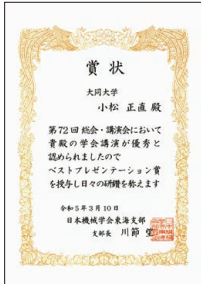 賞状
大同大学
小松 正直 殿
第72回総会・講演会において
貴殿の学会講演が優秀と
認められましたので
ベストプレゼンテーション賞
を授与し日々の研鑽を称えます
令和5年3月10日
日本機械学会東海支部
支部長 川節